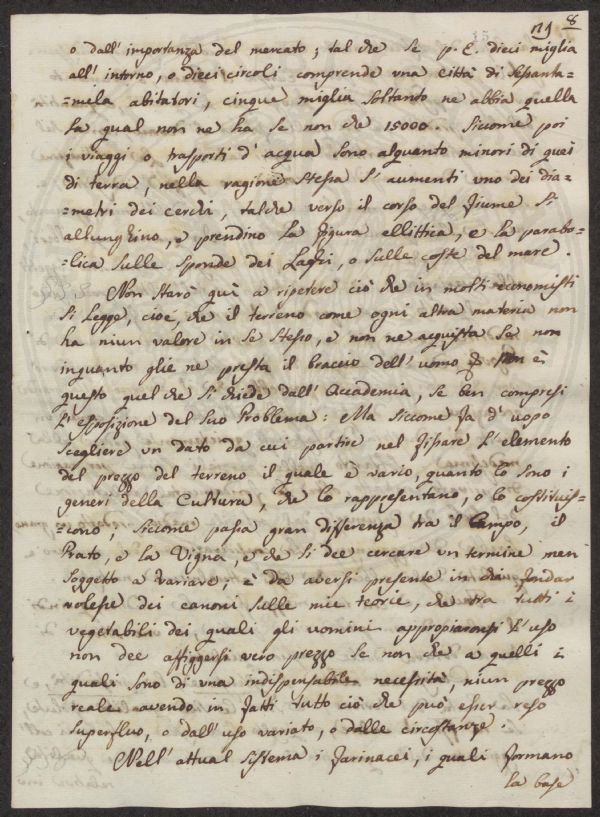 8
o dall' importanza del mercato; tal che se p. E. dieci miglia
all' intorno, o dieci circoli comprende una Città di Sessanta=
=mila abitatori, cinque miglia soltanto ne abbia quella
la qual non ne ha se non che 15000. Siccome poi
i viaggi o trasporti d' acqua sono alquanto minori di quei
di terra, nella ragione stessa s' aumenti uno dei dia=
=metri dei cerchi, talche verso il corso del fiume si
allunghino, e prendino la figura ellittica, e la parabo=
=lica sulle sponde dei Laghi, o sulle coste del mare.
Non starò quì a ripetere ciò che in molti economisti
si legge, cioè, che il terreno come ogni altra materia non
ha niun valore in se stesso, e non ne acquista se non
inquanto glie ne presta il braccio dell' uomo è
questo quel che si chiede dall' Accademia, se ben compresi
l' esposizione del suo Problema: Ma siccome fa d' uopo
scegliere un dato da cui partire nel fissare l' elemento
del prezzo del terreno il quale è vario, quanto lo sono i
generi della Cultura, che lo rappresentano, o lo costituis=
=cono, siccome passa gran differenza tra il Campo, il
Prato, e la Vigna, e che si dee cercare un termine men
soggetto a variare; è da aversi presente in chi fondar
volesse dei canoni sulle mie teorie, che tra tutti i
vegetabili dei quali gli uomini appropiaronsi l' uso
non dee affiggersi vero prezzo se non che a quelli i
quali sono di una indispensabile necessità, niun prezzo
reale avendo in fatti tutto ciò che può esser reso
superfluo, o dall' uso variato, o dalle circostanze.
Nell' attual sistema i farinacei, i quali formano
la base